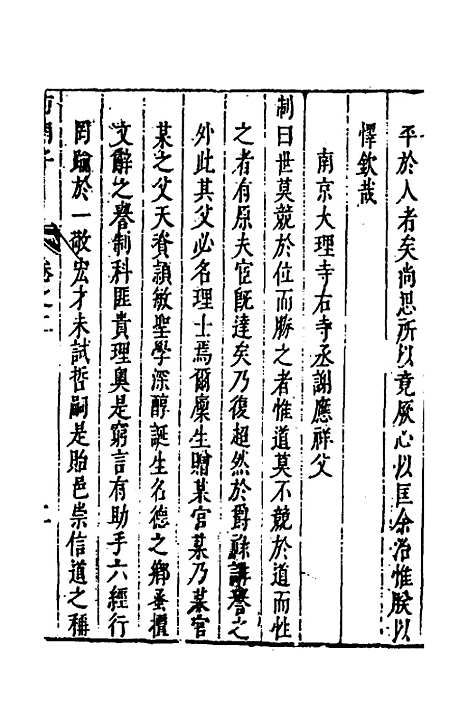 平於人者矣尚思所以竟厥心以匡余治惟朕以
懌欽哉
南京大理寺右寺丞謝應祥父
制曰世莫競於位而勝之者惟道莫不競於道而性
之者有原夫官旣達矣乃復超然於爵祿講譽之
外此其父必名理士焉爾廩生贈某官某乃某官
某之父天資穎敏聖學深醇誕生名德之鄉蚤擅
文辭之譽制科匪貴理奧是窮言有助乎六經行
罔踰於一敬宏才未試哲嗣是貽邑崇信道之稱
卷之二
二